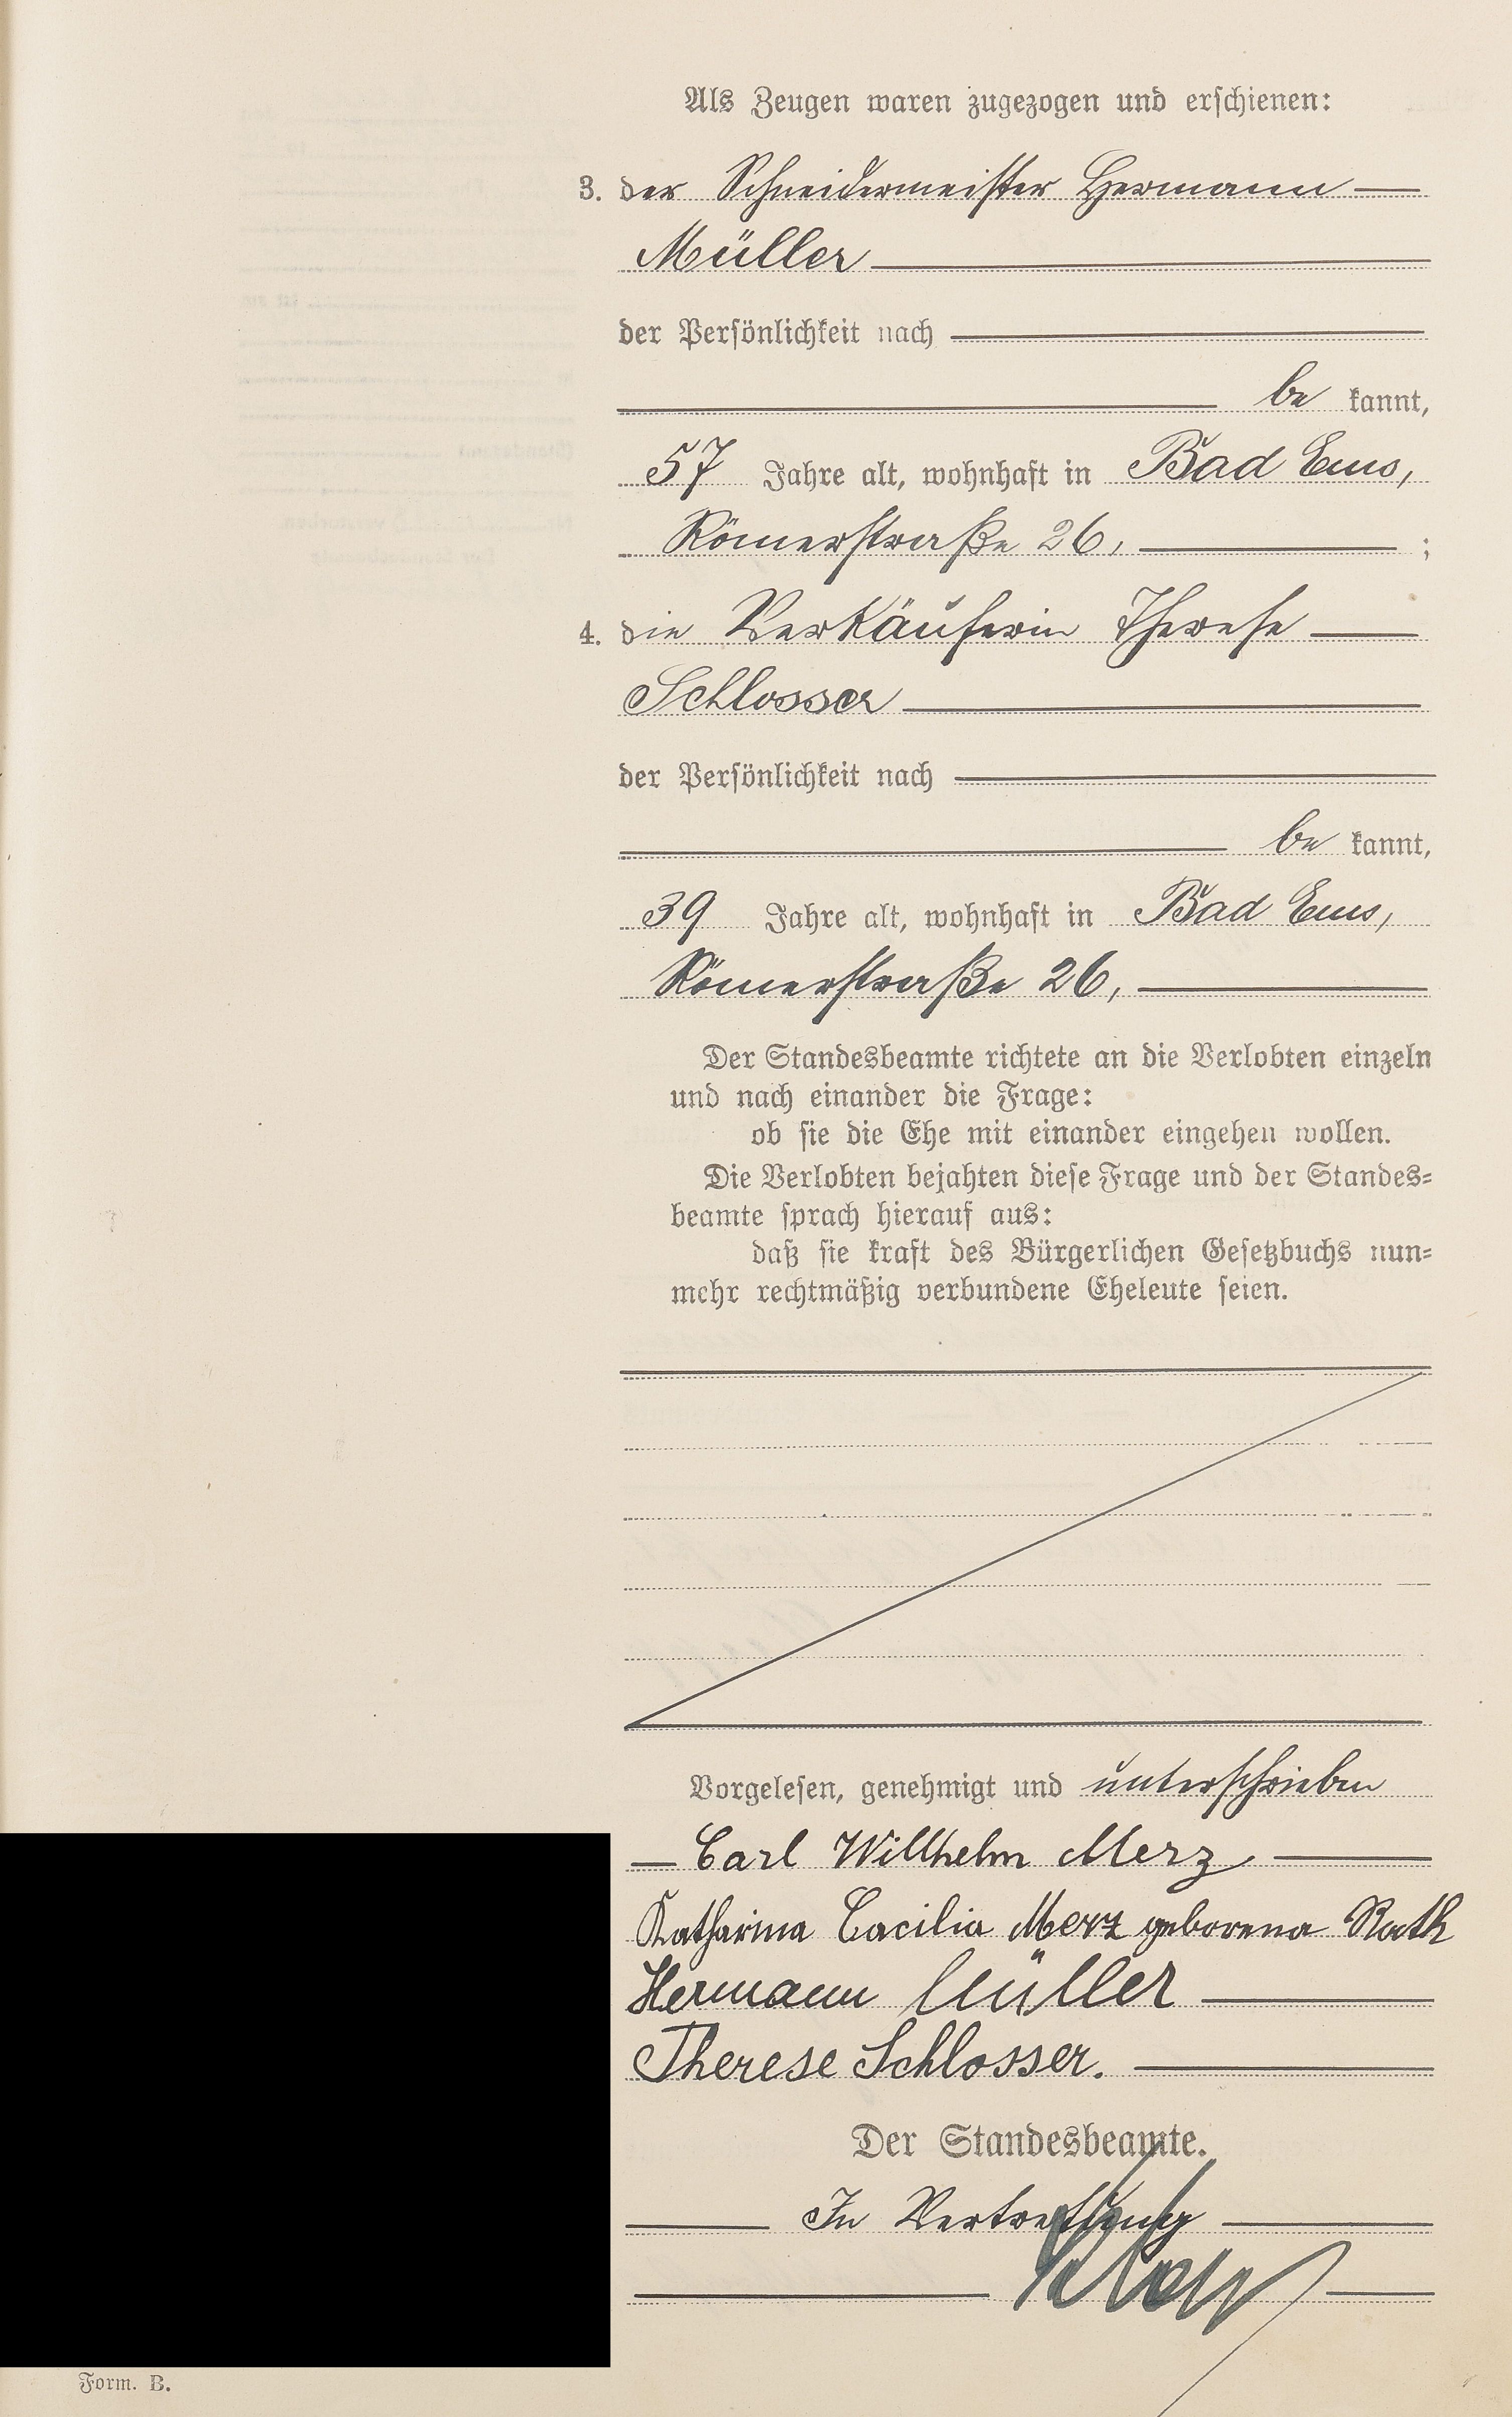 Als Zeugen waren zugezogen und erschienen:
3. der Schneidermeister Hermann
Müller
der Persönlichkeit nach
be kannt,
57 Jahre alt, wohnhaft in Bad Ems,
Römerstraße 26, ;
4. die Verkäuferin Therese
Schlosser
der Persönlichkeit nach
be kannt,
39 Jahre alt, wohnhaft in Bad Ems,
Römerstraße 26,
Der Standesbeamte richtete an die Verlobten einzeln
und nach einander die Frage:
ob sie die Ehe mit einander eingehen wollen.
Die Verlobten bejahten diese Frage und der Standes=
beamte sprach hierauf aus:
daß sie kraft des Bürgerlichen Gesetzbuchs nun=
mehr rechtmäßig verbundene Eheleute seien.
Vorgelesen, genehmigt und unterschrieben
Carl Willhelm Merz
Katharina Cacilia Merz geborena Rath
Hermann Müller
Therese Schlosser.
Der Standesbeamte.
In Vertretung
Form. B.